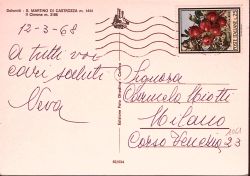 Dolomiti - S. MARTINO DI CASTROZZA m. 1444
Il Cimone m. 3186
12-3-68
A tutti voi
cari saluti
Neva
Signora
Carmela Miotti
Milano
Corso Venezia 23